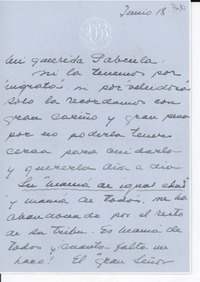 Junio 18
Mi querida Pabcula:
ni la tenemos por
"ingrata" ni por "olvidosa"
solo la recordamos con
gran cariño y gran pena
por no poderla tener
cerca para cuidarla
y quererla día a día
Su "mamá de igual edad"
y mamá de todos, me ha
abandonado por el resto
de su tribu. Es mamá de
todos y ¡cuanta falta me
hace! El "gran Señor